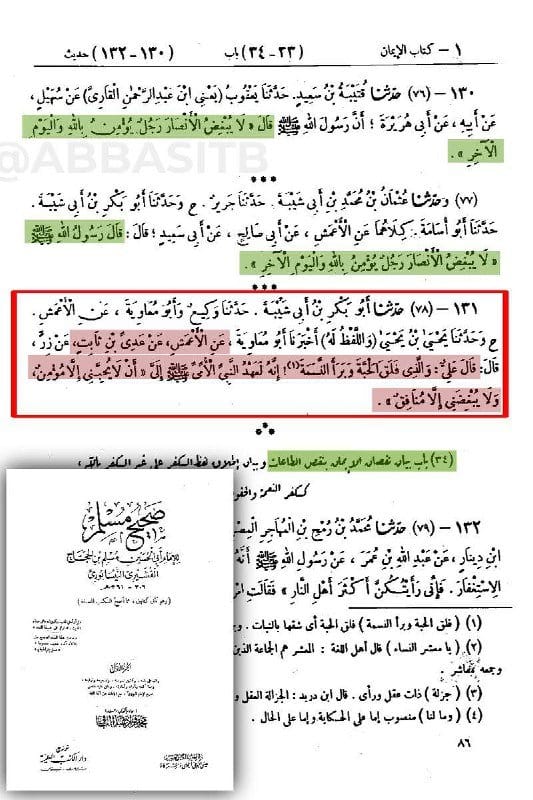 ١ – كتاب الإيمان
(٣٣-٣٤) باب
(١٣٠-١٣٢) حديث
١٣٠ – (٧٦) حَدَّثَنَا قُتَيْبَةُ بْنُ سَعِيدٍ. حَدَّثَنَا يَعْقُوبُ (يَعْنِي ابْنَ عَبْدِ الرَّحْمٰنِ الْقَارِيَّ) عَنْ سُهَيْلٍ،
عَنْ أَبِيهِ، عَنْ أَبِي هُرَيْرَةَ؛ أَنَّ رَسُولَ اللهِ ﷺ قَالَ «لَا يُبْغِضُ الْأَنْصَارَ رَجُلٌ يُؤْمِنُ بِاللهِ وَالْيَوْمِ
الْآخِرِ».
@ABBASITB
***
(٧٧) وَحَدَّثَنَا عُثْمَانُ بْنُ مُحَمَّدِ بْنِ أَبِي شَيْبَةَ. حَدَّثَنَا جَرِيرٌ. ح وَحَدَّثَنَا أَبُو بَكْرِ بْنُ أَبِي شَيْبَةَ.
حَدَّثَنَا أَبُو أُسَامَةَ. كِلَاهُمَا عَنِ الْأَعْمَشِ، عَنْ أَبِي صَالِحٍ، عَنْ أَبِي سَعِيدٍ؛ قَالَ: قَالَ رَسُولُ اللهِ ﷺ
«لَا يُبْغِضُ الْأَنْصَارَ رَجُلٌ يُؤْمِنُ بِاللهِ وَالْيَوْمِ الْآخِرِ».
***
١٣١ – (٧٨) حَدَّثَنَا أَبُو بَكْرِ بْنُ أَبِي شَيْبَةَ. حَدَّثَنَا وَكِيعٌ وَأَبُو مُعَاوِيَةَ، عَنِ الْأَعْمَشِ.
ح وَحَدَّثَنَا يَحْيَىٰ بْنُ يَحْيَىٰ (وَاللَّفْظُ لَهُ) أَخْبَرَنَا أَبُو مُعَاوِيَةَ، عَنِ الْأَعْمَشِ، عَنْ عَدِيِّ بْنِ ثَابِتٍ، عَنْ زِرٍّ،
قَالَ: قَالَ عَلِيٌّ: وَالَّذِي فَلَقَ الْحَبَّةَ وَبَرَأَ النَّسَمَةَ(١)! إِنَّهُ لَعَهْدُ النَّبِيِّ الْأُمِّيِّ ﷺ إِلَيَّ «أَنْ لَا يُحِبَّنِي إِلَّا مُؤْمِنٌ،
وَلَا يُبْغِضَنِي إِلَّا مُنَافِقٌ».
(٣٤) باب بيان نقصان الإيمان بنقص الطاعات وبيان إطلاق لفظ الكفر على غير الكفر بالله،
ككفر النعمة والحقوق
١٣٢ – (٧٩) حَدَّثَنَا مُحَمَّدُ بْنُ رُمْحِ بْنِ الْمُهَاجِرِ
ابْنِ دِينَارٍ، عَنْ عَبْدِ اللهِ بْنِ عُمَرَ، عَنْ رَسُولِ اللهِ ﷺ أَنَّهُ
الِاسْتِغْفَارَ. فَإِنِّي رَأَيْتُكُنَّ أَكْثَرَ أَهْلِ النَّارِ» فَقَالَتِ
(١) (فلق الحبة وبرأ النسمة) فلق الحبة أي شقها بالنبات.
(٢) (يا معشر النساء) قال أهل اللغة: المعشر هم الجماعة الذين
وجمعه معاشر.
(٣) (جزلة) ذات عقل ورأى. قال ابن دريد: الجزالة العقل و
(٤) (وما لنا) منصوب إما على الحكاية وإما على الحال.
٨٦
صحيح مسلم
للإمام أبي الحسين مسلم بن الحجاج
القشيري النيسابوري
٢٠٦ - ٢٦١ هـ
الجزء الأول
محمد فؤاد عبد الباقي
توزيع
دار الكتب العلمية